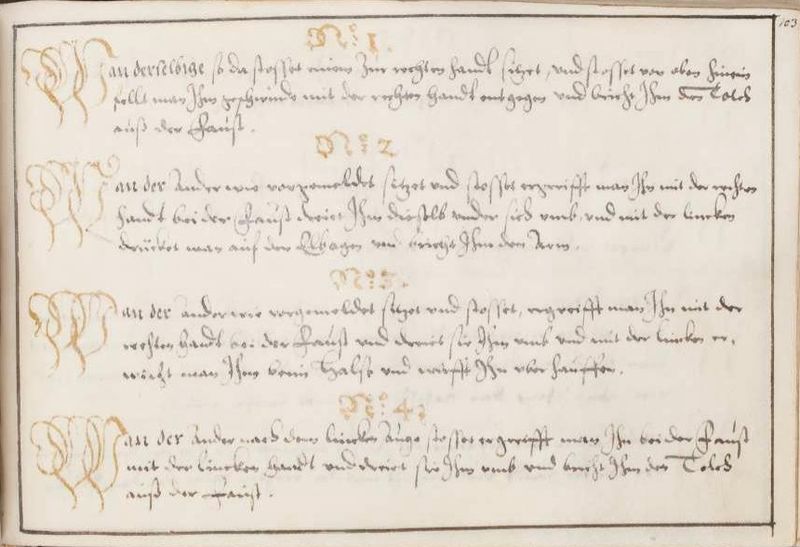 103
No: 1.
Wan derselbige so da stosset einem zur rechten handt sitzet, und stosset von oben hinein
fellt man Ihm geschwinde mit der rechten handt entgegen und bricht Ihm den Tolch
auß der Faust.
No: 2
Wan der Ander wie vorgemeldet sitzet und stosset ergreifft man Ihn mit der rechten
handt bei der Faust dreiet Ihm dieselb under sich umb, und mit der lincken
drücket man auf den Elbogen und bricht Ihm den Arm.
No: 3.
Wan der ander wie vorgemeldet sitzet und stosset, ergreifft man Ihn mit der
rechten handt bei der Faust und dreiet sie Ihm umb und mit der lincken er,
wischt man Ihm beim Halß und wirfft Ihn uber hauffen.
No: 4.
Wan der Ander nach dem lincken Auge stosset ergreifft man Ihn bei der Faust
mit der lincken handt und dreiet sie Ihm umb und bricht Ihm den Tolch
auß der Faust.